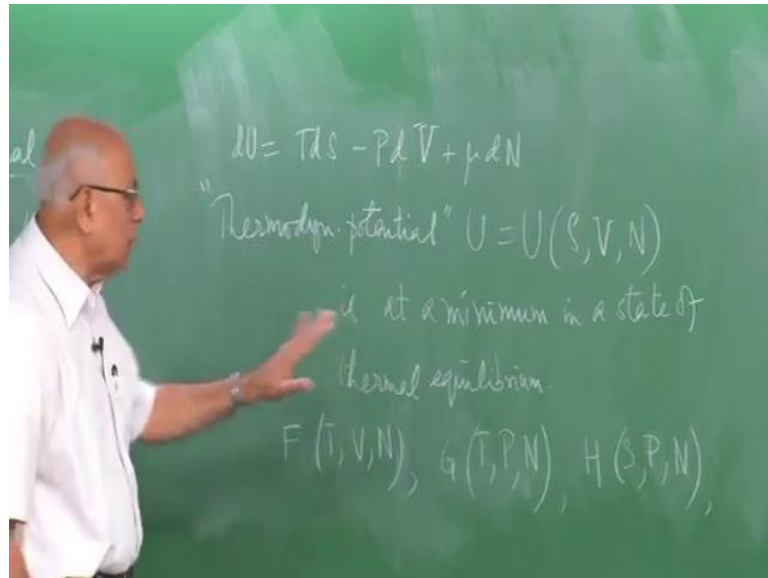 al
dU = TdS - PdV + μdN
"Thermodyn. potential" U = U(S,V,N)
is at a minimum in a state of
thermal equilibrium.
F (T,V,N), G(T,P,N), H(S,P,N),